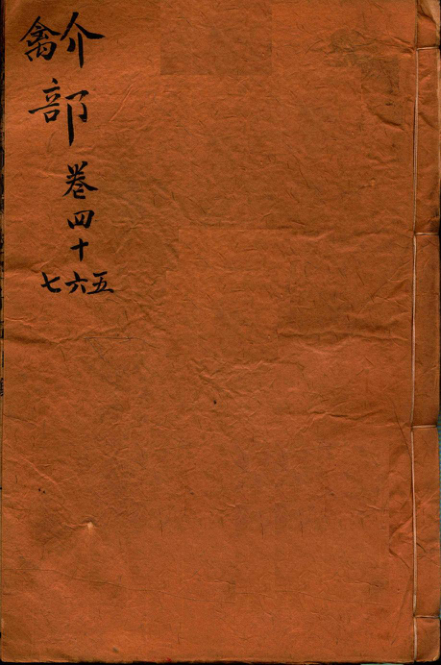 介禽
部
卷
四
十
五六七